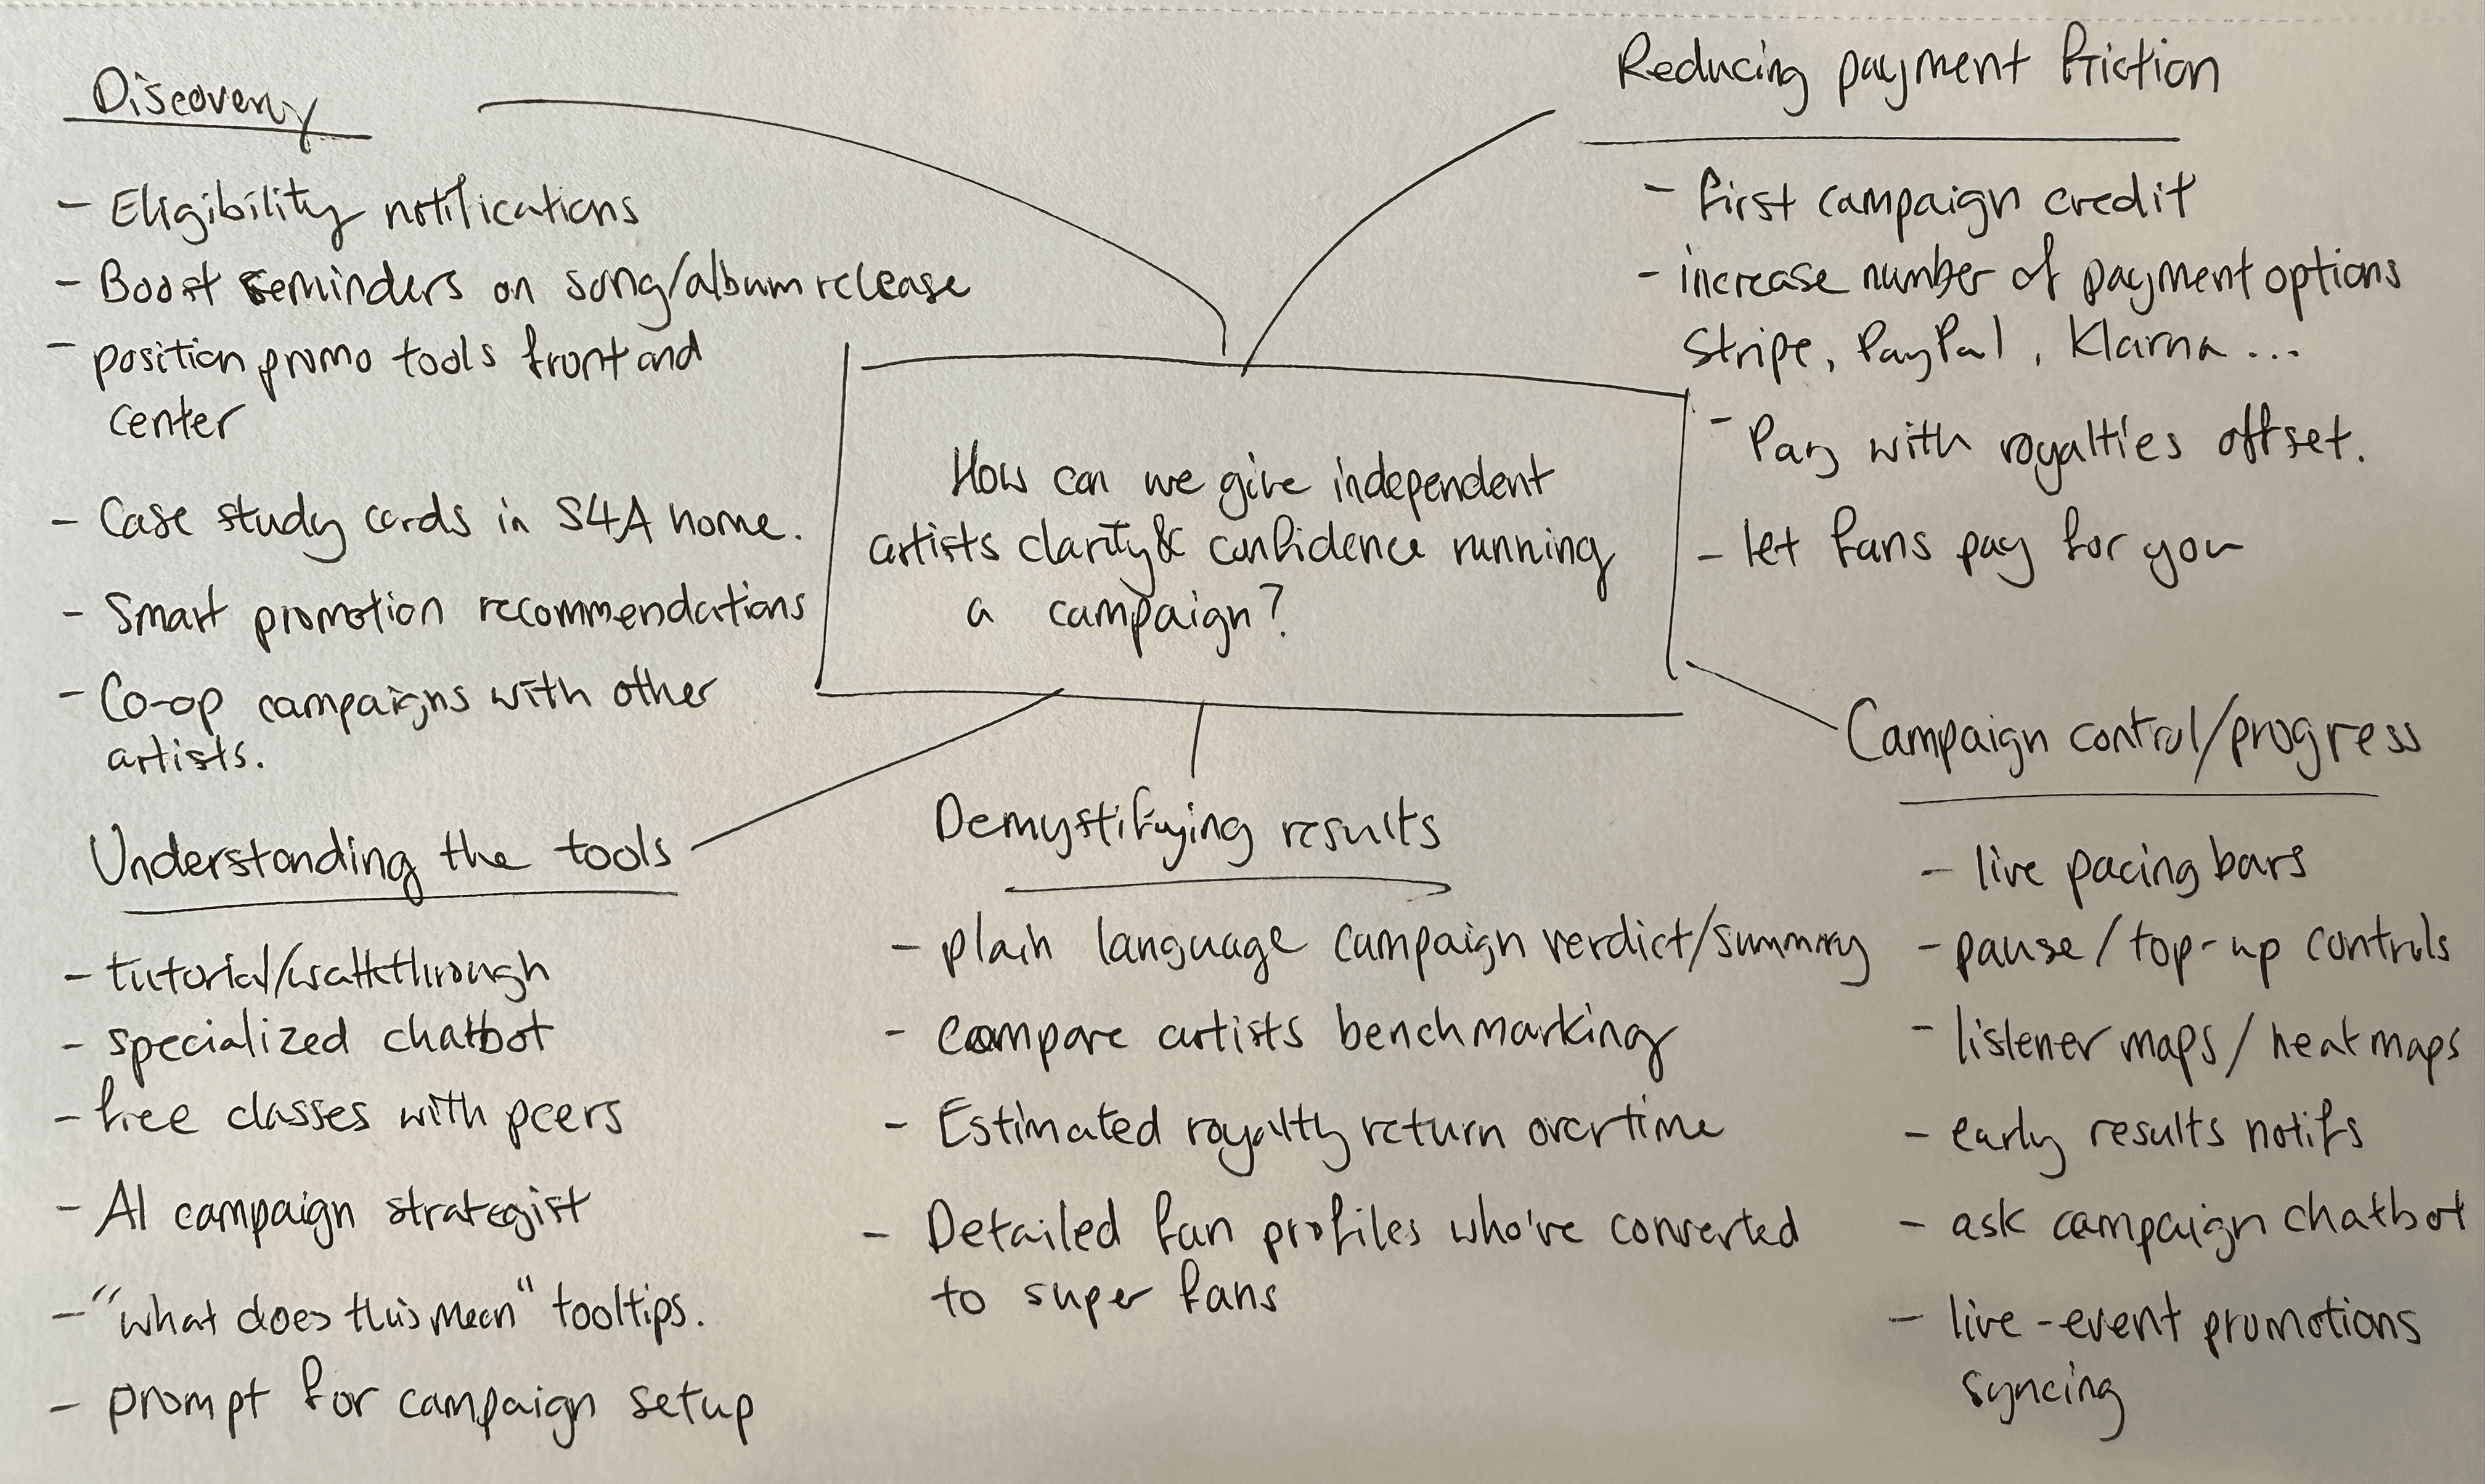 Discovery
- Eligibility notifications
- Boost reminders on song/album release
- position promo tools front and
center
- Case study cards in S4A home.
- Smart promotion recommendations
- Co-op campaigns with other
artists.
Reducing payment friction
- first campaign credit
- increase number of payment options
Stripe, PayPal, Klarna ...
- Pay with royalties offset.
- let fans pay for you
How can we give independent
artists clarity & confidence running
a campaign?
Understanding the tools
- tutorial/walkthrough
- specialized chatbot
- free classes with peers
- AI campaign strategist
- "what does this mean" tooltips.
- prompt for campaign setup
Demystifying results
- plain language campaign verdict/summary
- compare artists benchmarking
- Estimated royalty return overtime
- Detailed fan profiles who've converted
to super fans
Campaign control/progress
- live pacing bars
- pause/top-up controls
- listener maps/heatmaps
- early results notifs
- ask campaign chatbot
- live-event promotions
syncing